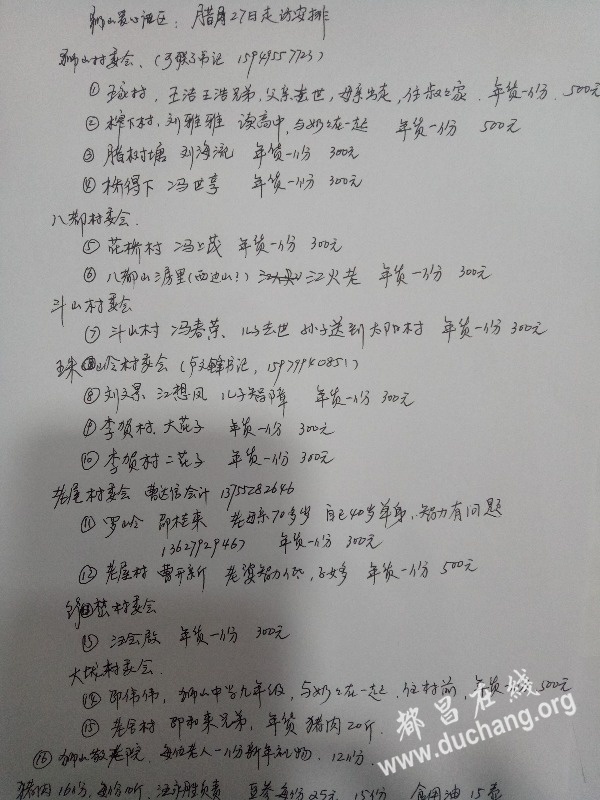 狮山爱心社区：腊月27日走访安排
狮山村委会、(书记 15949557723)
① 王家村，王浩王浩兄弟，父亲去世，母亲出走，住叔叔家．年货一份．500元
② 榨下村，刘雅雅 读高中，与奶奶在一起 年货一份 500元
③ 腊树塘 刘海流 年货一份 300元
④ 株得下 冯世享 年货一份 300元
八都村委会．
⑤ 花桥村 冯上茂 年货一份 300元
⑥ 八都山房里(西边山！) 江火老 年货一份 300元
斗山村委会
⑦ 斗山村 冯春荣、儿子去世 孙子送到太阳村 年货一份 300元
村委会 (书记，15979940851)
⑧ 刘文景 江想凤 儿子智障 年货一份 300元
⑨ 李贺村、大花子 年货一份 300元
⑩ 李贺村 二花子 年货一份 300元
老屋村委会 曹达信会计 13755282646
⑪ 罗山岭 邵桂来 老母亲70多岁 自己40岁单身，智力有问题
13627929467 年货一份 300元
⑫ 老屋村 曹开新 老婆智力低，子女多 年货一份 500元
村委会
⑬ 汪会殿 年货一份 300元
大坂村委会．
⑭ 邵伟伟，狮山中学九年级，与奶奶在一起，住村前，年货一份 500元
⑮ 老屋村 邵和来兄弟，年货 猪肉20斤．
⑯ 狮山敬老院，每位老人一份新年礼物．12份．
猪肉16份，每份10斤，汪负责 每份25元 15份 食用油 15壶
都昌在线
www.duchang.org